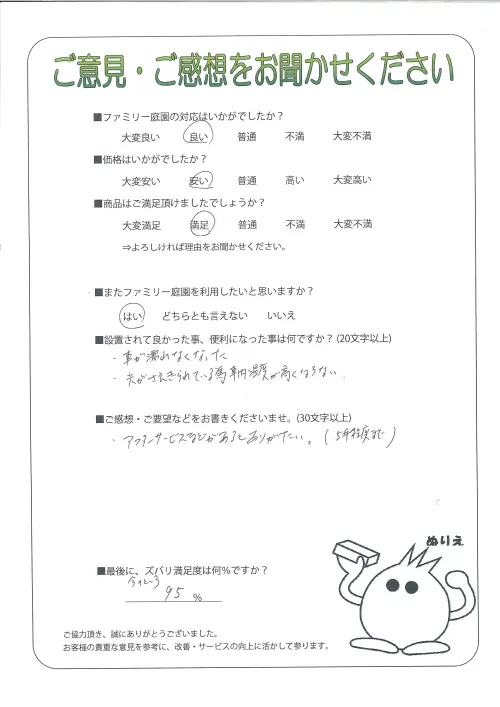 ご意見・ご感想をお聞かせください
■ファミリー庭園の対応はいかがでしたか？
大変良い 良い 普通 不満 大変不満
■価格はいかがでしたか？
大変安い 安い 普通 高い 大変高い
■商品はご満足頂けましたでしょうか？
大変満足 満足 普通 不満 大変不満
⇒よろしければ理由をお聞かせください。
■またファミリー庭園を利用したいと思いますか？
はい どちらとも言えない いいえ
■設置されて良かった事、便利になった事は何ですか？(20文字以上)
・車が濡れなくなった
・光がさえぎられている為車内温度が高くならない.
■ご感想・ご要望などをお書きくださいませ。(30文字以上)
・アフターサービスなどがあるとありがたい。(5年程度まで)
ぬりえ
■最後に、ズバリ満足度は何％ですか？
今のところ
95 %
ご協力頂き、誠にありがとうございました。
お客様の貴重な意見を参考に、改善・サービスの向上に活かして参ります。